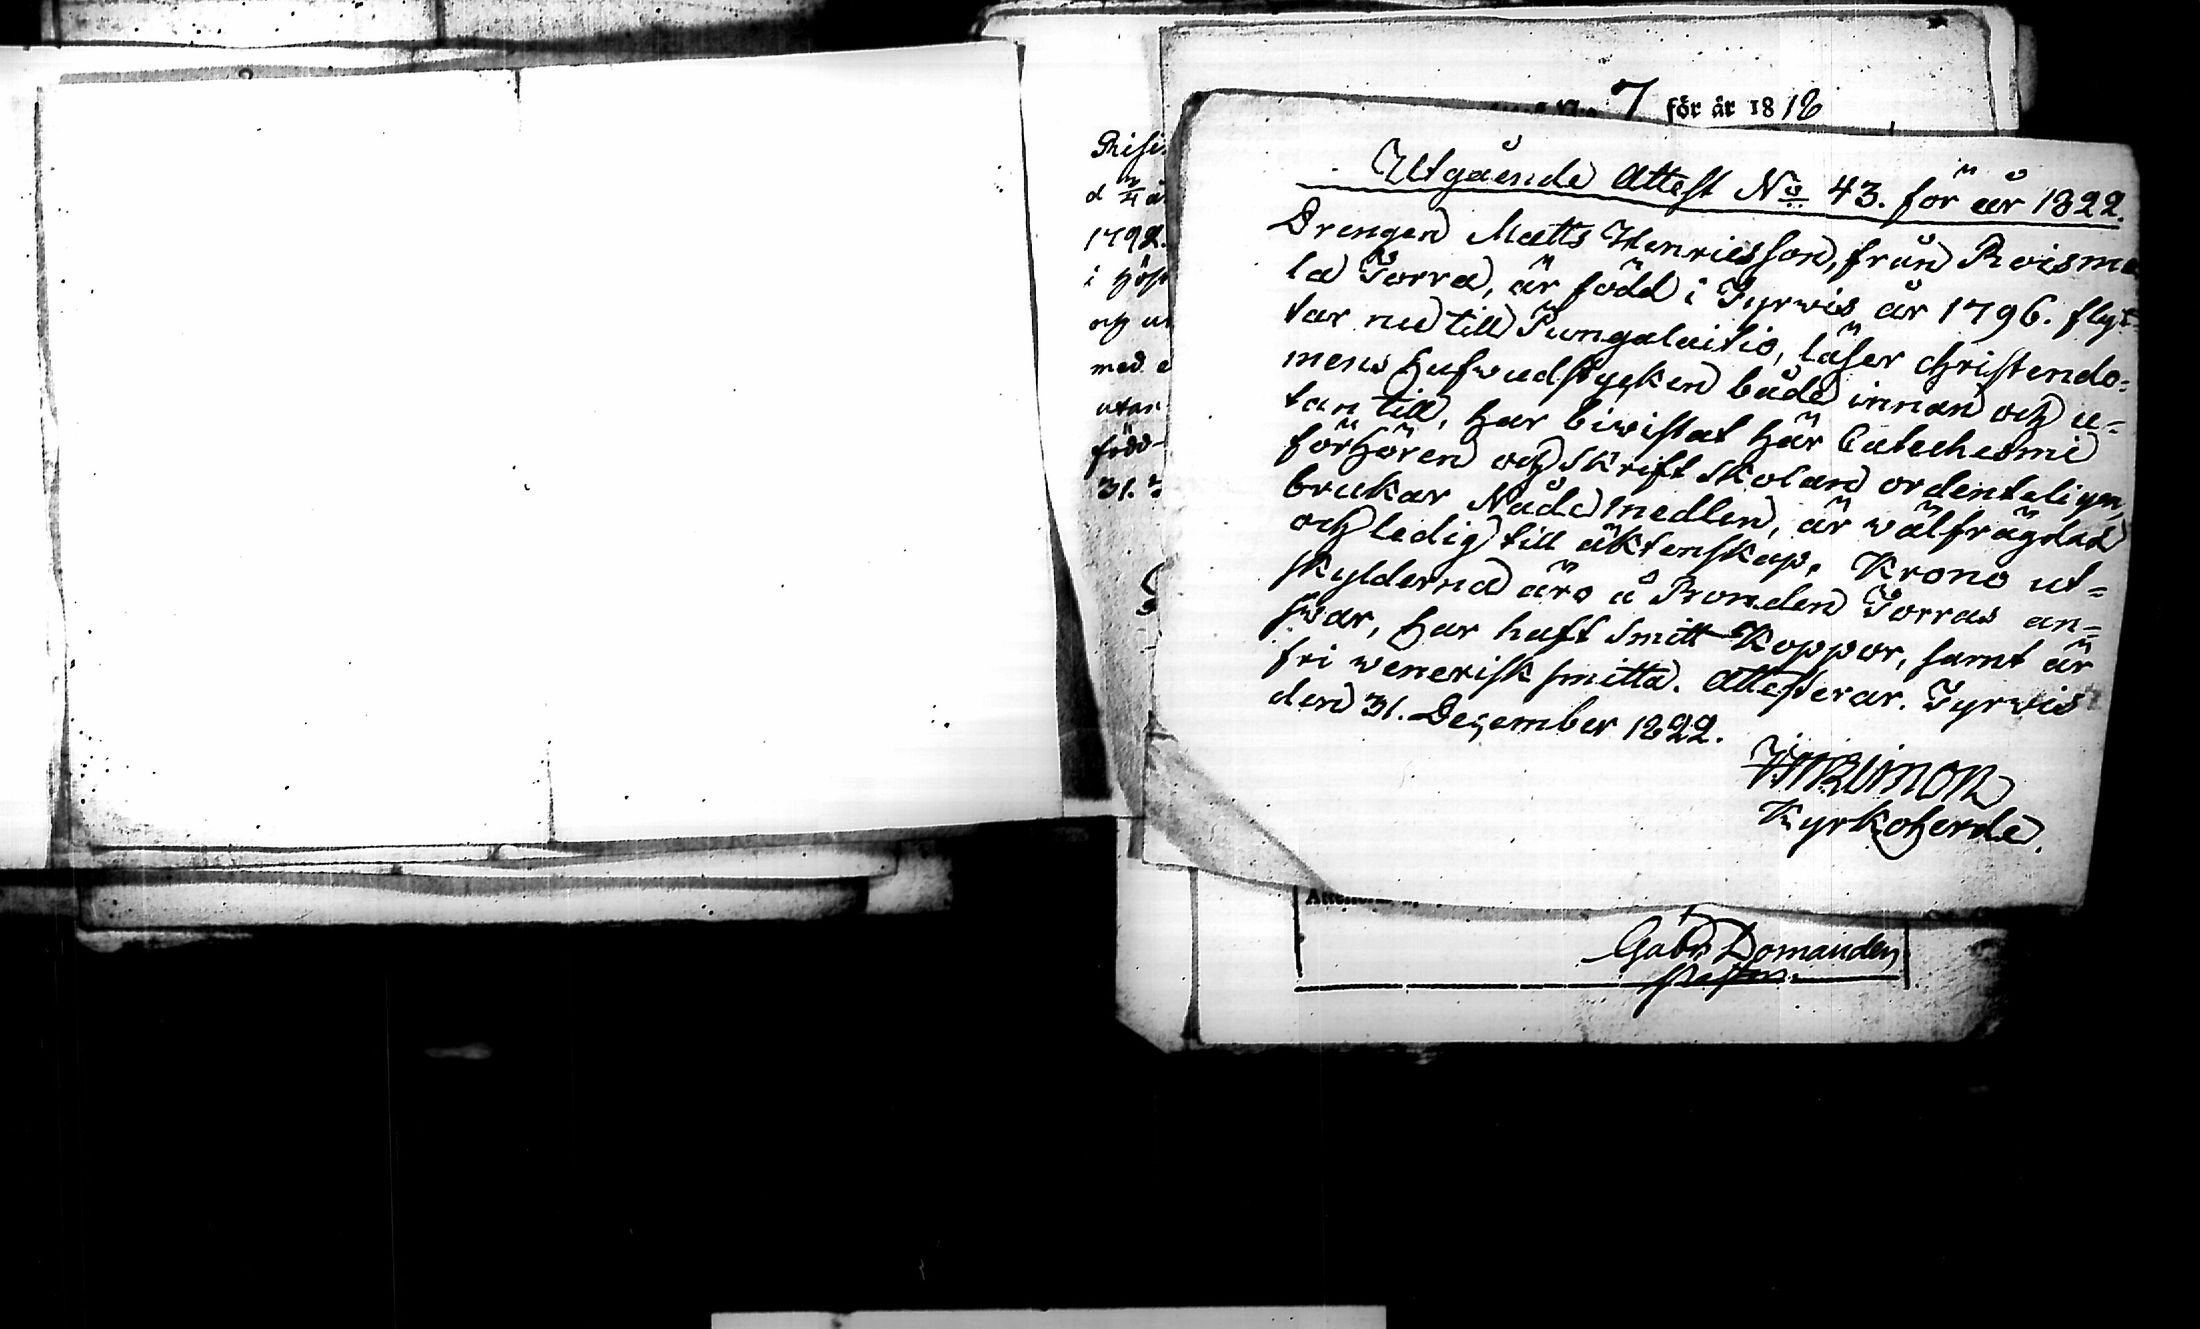 7 för år 1818
Utgående Attest No 43. för år 1822.
Drengen Matts Henricsson, från Roisma
la Torra, är född i Tyrwis år 1796. flyt-
tar nu till Pungalaitio, läser christendo-
mens hufwudstycken både innan och u-
tan till, har biwistat här Catechismi
förhören och Skriftskolan ordenteligen,
brukar Nådemedlen, är wälfrägdad
och ledig till äktenskap. Krono ut-
skylderna äro å Bonden Torras an-
swar, har haft Smitt Koppor, samt är
fri wenerisk smitta. Attesterar. Tyrwis
den 31. December 1822.
Kyrkoherde.
d
1792.
i
med
utan
född
31.
Gabr.
Pastor.